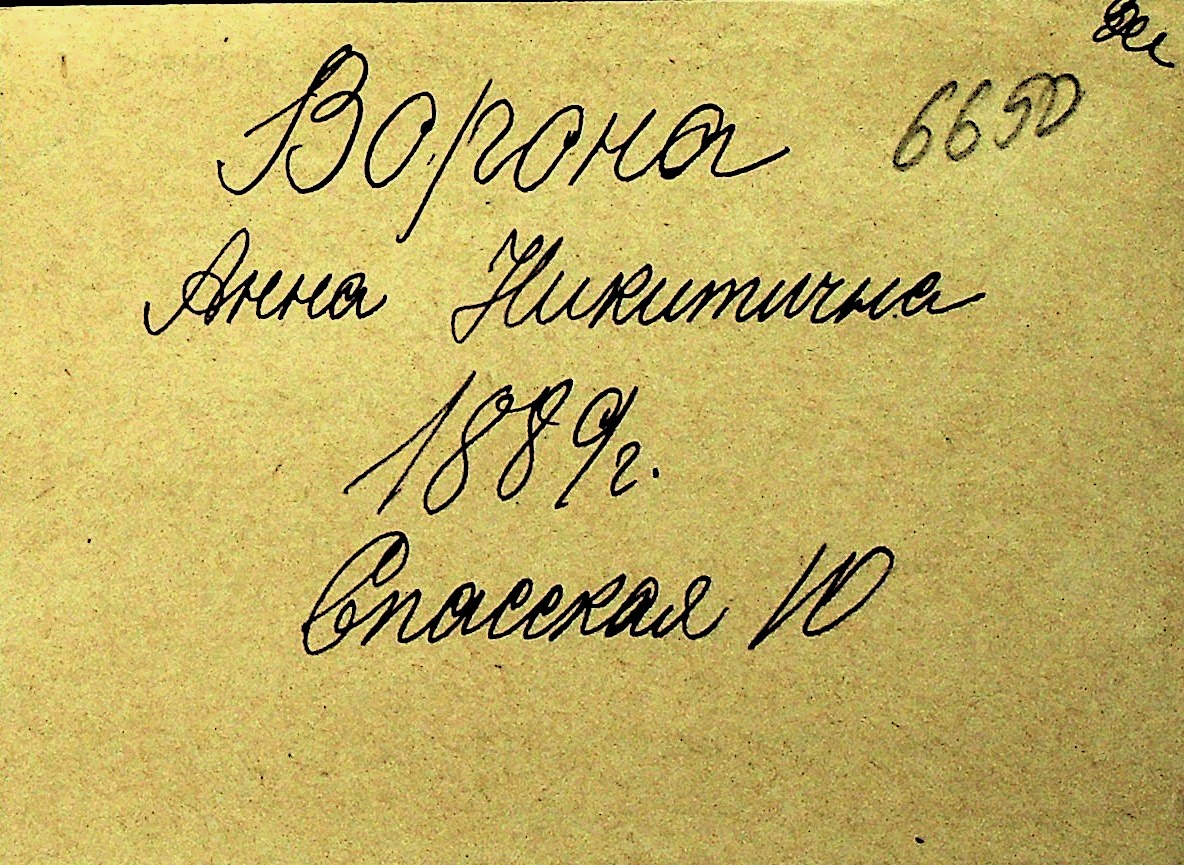 Ворона
6650
Анна Никитична
1889г.
Спасская 10